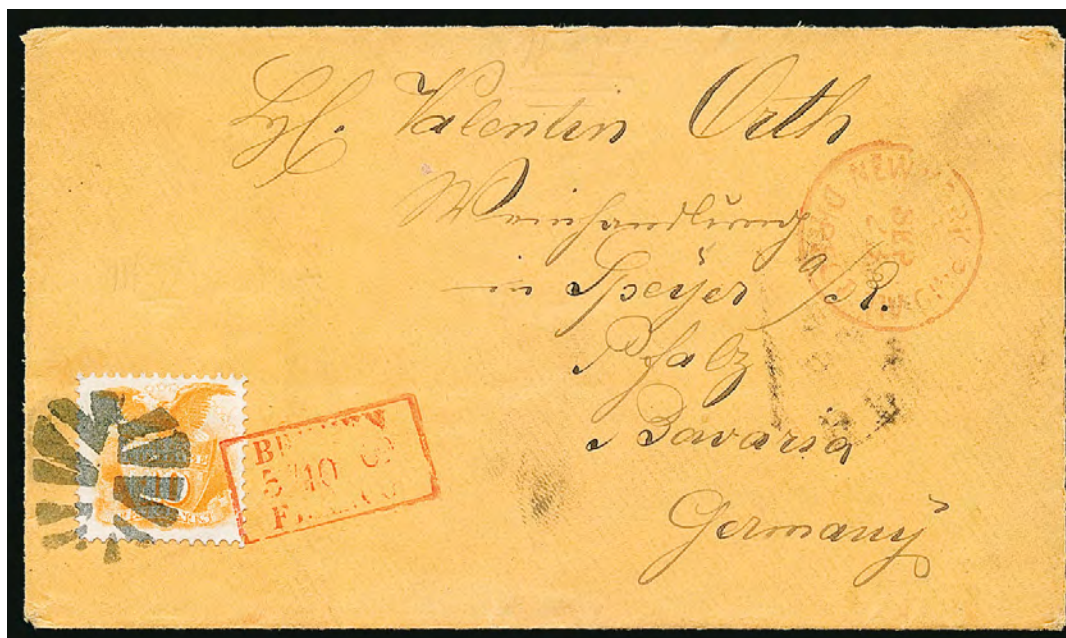 Valentin Orth
Weinhandlung
in Speÿer a/R.
Pfalz
Bavaria
Germanÿ
NEW YORK
SEP
BREMEN
5 10
FRANCO
10